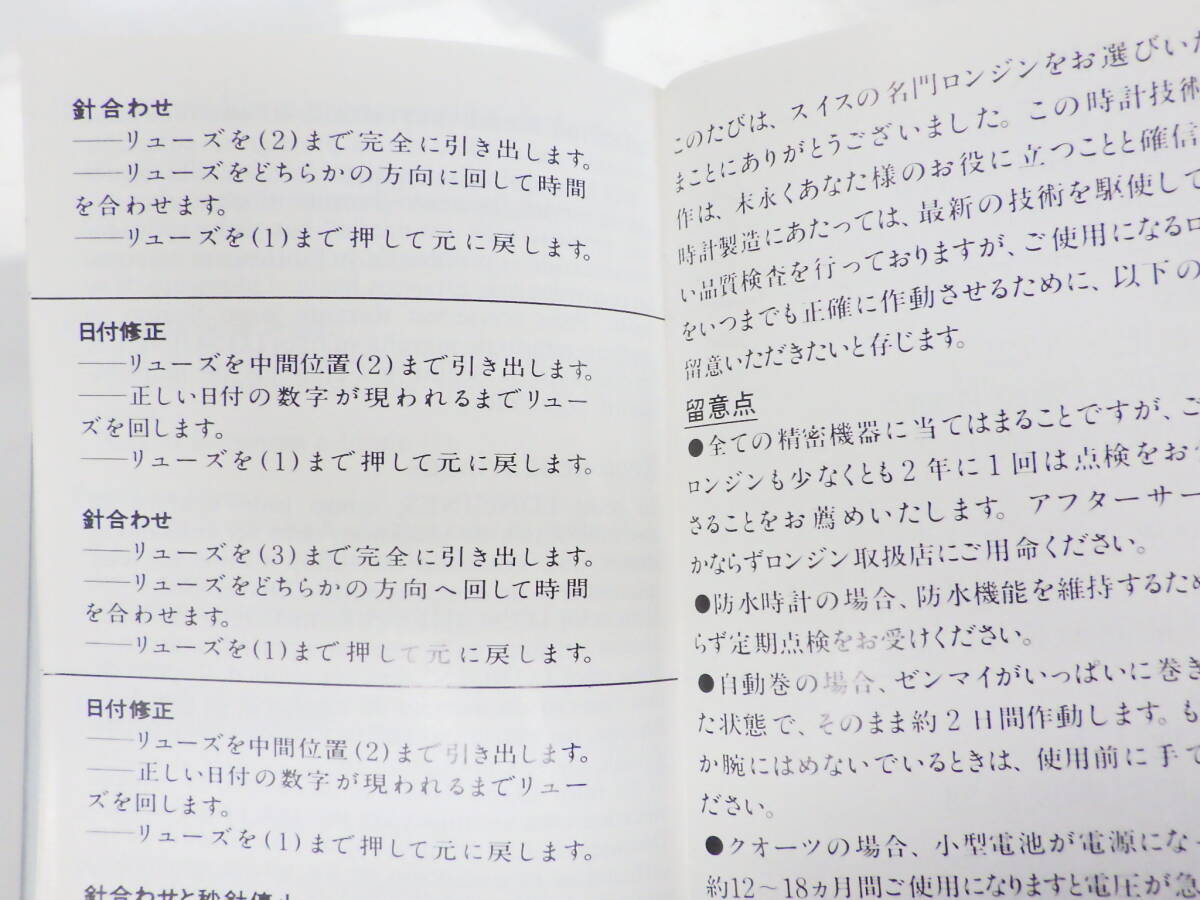 針合わせ
――リューズを(2)まで完全に引き出します。
――リューズをどちらかの方向に回して時間
を合わせます。
――リューズを(1)まで押して元に戻します。
日付修正
――リューズを中間位置(2)まで引き出します。
――正しい日付の数字が現われるまでリュー
ズを回します。
――リューズを(1)まで押して元に戻します。
針合わせ
――リューズを(3)まで完全に引き出します。
――リューズをどちらかの方向へ回して時間
を合わせます。
――リューズを(1)まで押して元に戻します。
日付修正
――リューズを中間位置(2)まで引き出します。
――正しい日付の数字が現われるまでリュー
ズを回します。
――リューズを(1)まで押して元に戻します。
針合わせと秒針停止
このたびは、スイスの名門ロンジンをお選びいた
まことにありがとうございました。この時計技術
作は、末永くあなた様のお役に立つことと確信
時計製造にあたっては、最新の技術を駆使して
い品質検査を行っておりますが、ご使用になるロ
をいつまでも正確に作動させるために、以下の
留意いただきたいと存じます。
留意点
●全ての精密機器に当てはまることですが、ご
ロンジンも少なくとも2年に1回は点検をお
さることをお薦めいたします。アフターサー
かならずロンジン取扱店にご用命ください。
●防水時計の場合、防水機能を維持するため
らず定期点検をお受けください。
●自動巻の場合、ゼンマイがいっぱいに巻き
た状態で、そのまま約2日間作動します。も
か腕にはめないでいるときは、使用前に手で
ださい。
●クオーツの場合、小型電池が電源にな
約12〜18ヵ月間ご使用になりますと電圧が急